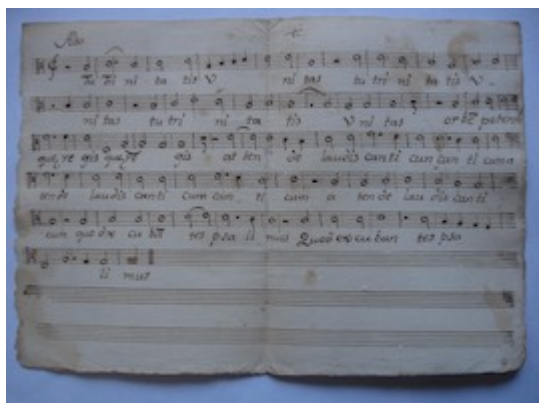 ni ta tis V ni tas tu tri ni ta tis V
ni tas tu tri ni ta tis V ni tas
re gis gis at ten de laudis can ti cun can ti cum a
tende laudis can ti cum can ti cum a tende lau dis can ti
cum tes psa li mus Quod ex cu ban tes psa
li mus